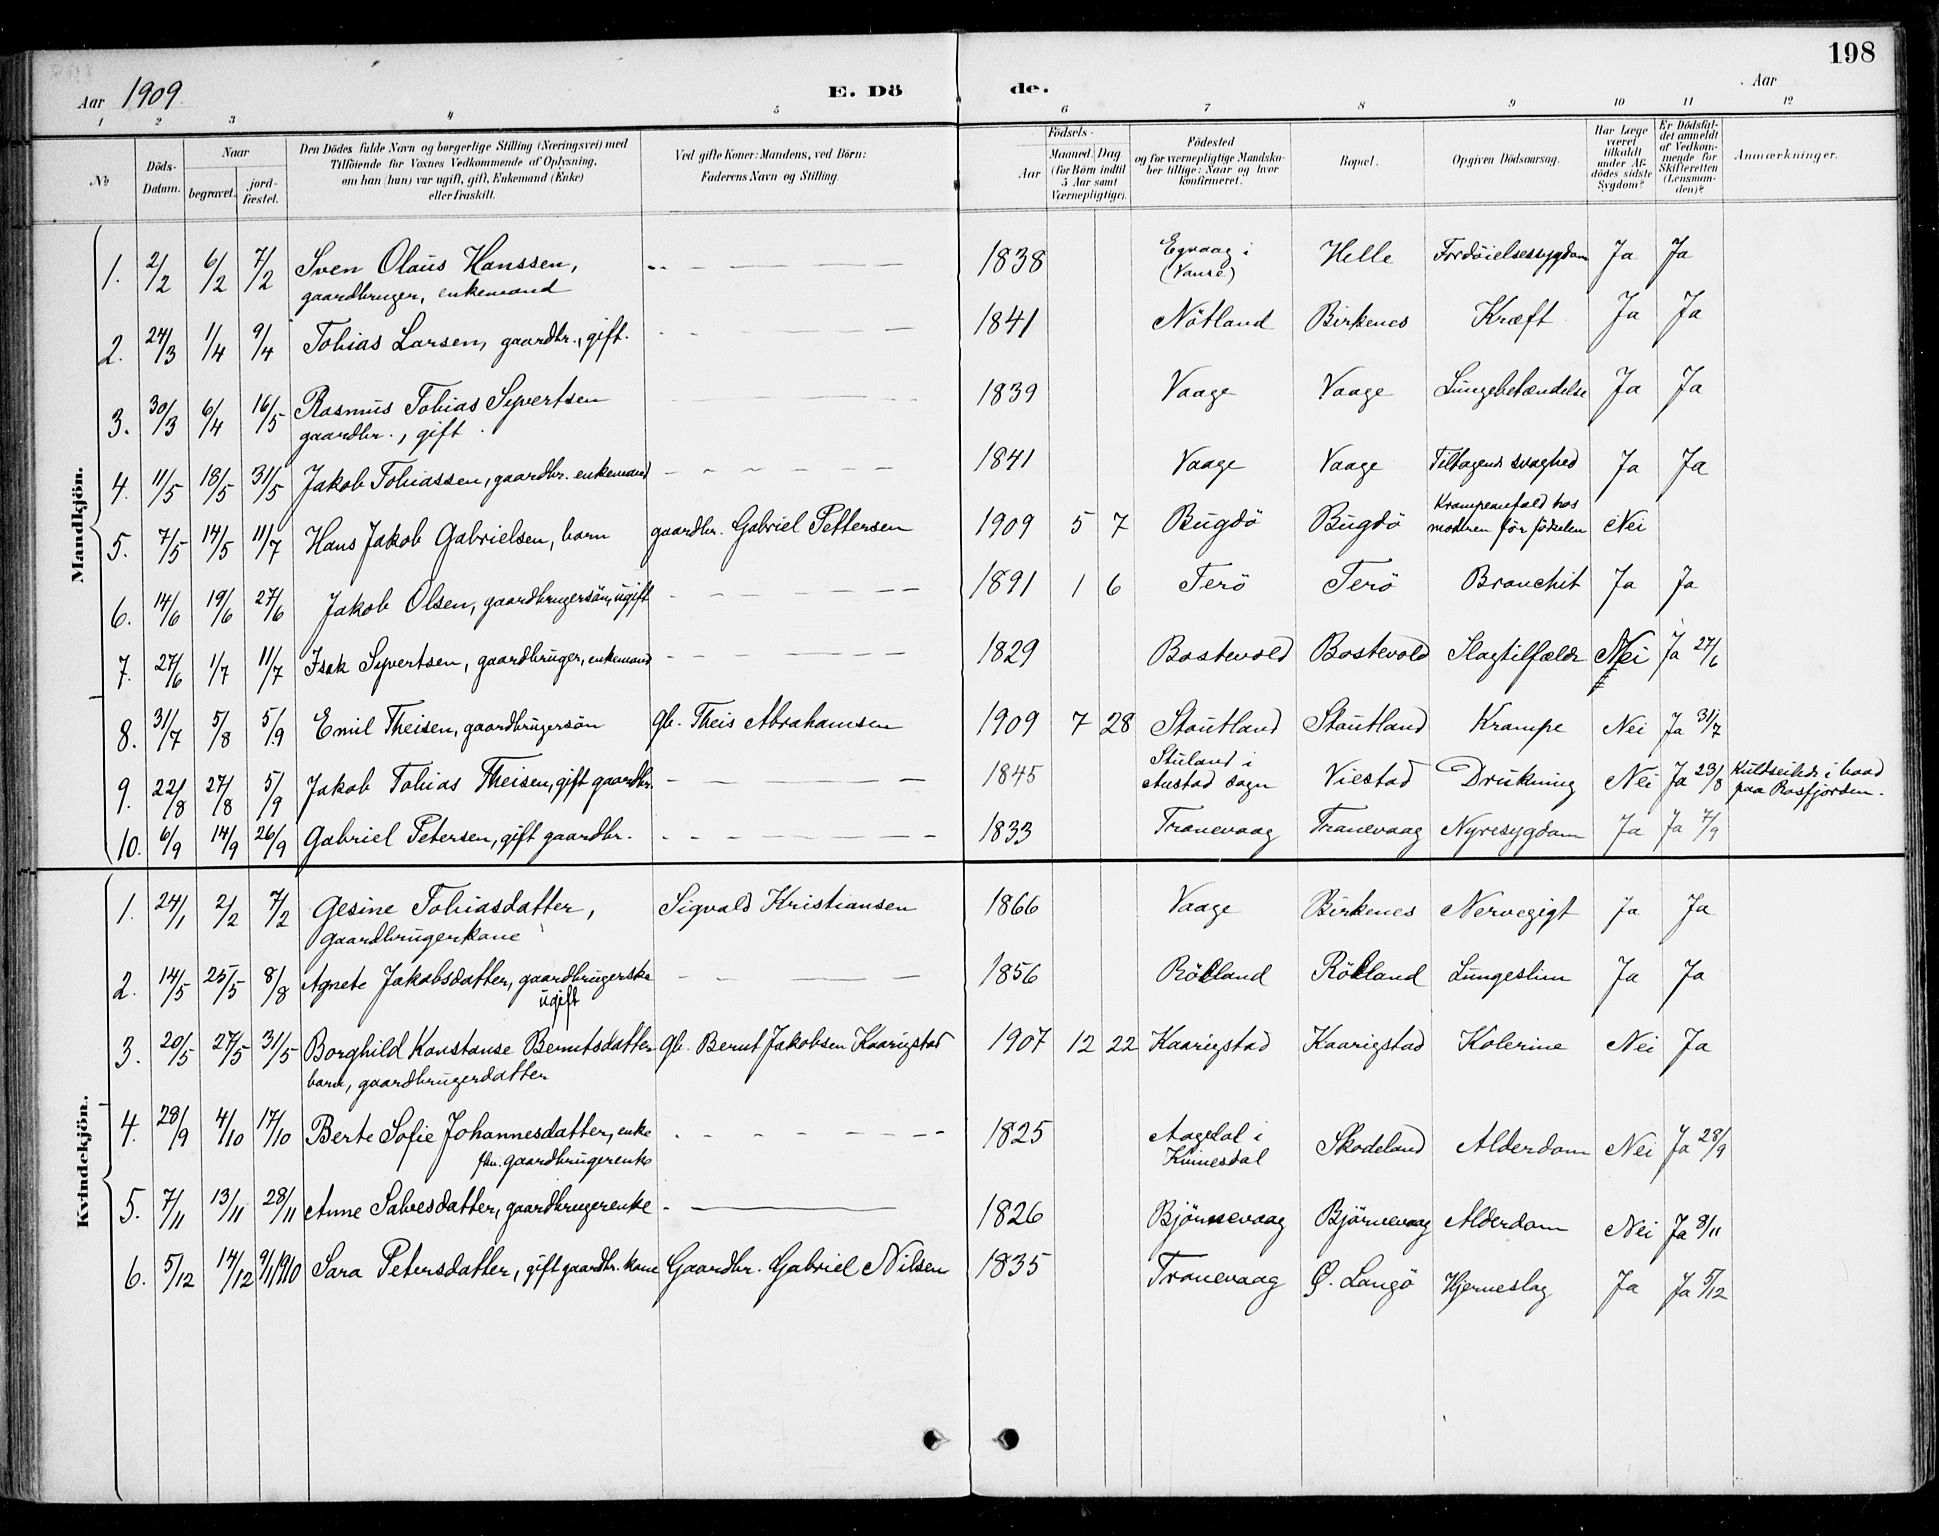 198
Aar 1909 E. Dö de. Aar
1 2 3 4 5 6 7 8 9 10 11 12
No
Döds-Datum.
Naar
begravet.
jord-fæstet.
Den Dödes fulde Navn og borgerlige Stilling (Næringsvei) med
Tilföiende for Voxnes Vedkommende af Oplysning,
om han (hun) var ugift, gift, Enkemand (Enke)
eller fraskilt.
Ved gifte Koner: Mandens, ved Börn:
Faderens Navn og Stilling.
Födsels-
Aar
Maaned. Dag
(for Börn indtil
5 Aar samt
Værnepligtige).
Födested
og for værnepligtige Mandska-
ber tillige: Naar og hvor
konfirmeret.
Bopæl.
Opgiven Dödsaarsag.
Har Læge
været
tilkaldt
under Af-
dödes sidste
Sygdom?
Er Dödsfal-
det anmeldt
af Vedkom-
mende for
Skifteretten
(Lensman-
den)?
Anmærkninger.
Mandkjön.
1. 2/2 6/2 7/2 Sven Olaus Hanssen, 1838 Egvaag i Helle Fordöielsessygdom Ja Ja
gaardbruger, enkemand (Vanse)
2. 24/3 1/4 9/4 Tobias Larsen, gaardbr., gift. 1841 Nötland Birkenes Kræft Ja Ja
3. 30/3 6/4 16/5 Rasmus Tobias Syvertsen 1839 Vaage Vaage Lungebetændelse Ja Ja
gaardbr., gift.
4. 11/5 18/5 31/5 Jakob Tobiassen, gaardbr. enkemand 1841 Vaage Vaage Tiltagende svaghed Ja Ja
5. 7/5 14/5 11/7 Hans Jakob Gabrielsen, barn gaardbr. Gabriel Pettersen 1909 5 7 Bugdö Bugdö Krampeanfald hos
moderen för födselen Nei
6. 14/6 19/6 27/6 Jakob Olsen, gaardbrugersön, ugift 1891 1 6 Terö Terö Bronchit Ja Ja
7. 27/6 1/7 11/7 Isak Syvertsen, gaardbruger, enkemand 1829 Bostevold Bostevold Slagtilfælde Nei Ja 27/6
8. 31/7 5/8 5/9 Emil Theisen, gaardbrugersön gb. Theis Abrahamsen 1909 7 28 Stoutland Stoutland Krampe Nei Ja 31/7
9. 22/8 27/8 5/9 Jakob Tobias Theisen, gift gaardbr. 1845 Stuland i
Austad sogn Viestad Drukning Nei Ja 23/8 Kuldseilede i baad
paa Rosfjorden.
10. 6/9 14/9 26/9 Gabriel Petersen, gift gaardbr. 1833 Tranevaag Tranevaag Nyresygdom Ja Ja 7/9
Kvindekjön.
1. 24/1 2/2 7/2 Gesine Tobiasdatter, Sigvald Kristiansen 1866 Vaage Birkenes Nervegigt Ja Ja
gaardbrugerkone
2. 14/5 25/5 8/8 Agnete Jakobsdatter, gaardbrugerske 1856 Rödland Rödland Lungeslim Ja Ja
ugift
3. 20/5 27/5 31/5 Borghild Konstanse Berntsdatter gb. Bernt Jakobsen Kaarigstad 1907 12 22 Kaarigstad Kaarigstad Kolerine Nei Ja
barn, gaardbrugerdatter
4. 28/9 4/10 17/10 Berte Sofie Johannesdatter, enke 1825 Aagedal i Skodeland Alderdom Nei Ja 28/9
fhv. gaardbrugerenke Kvinesdal
5. 7/11 13/11 28/11 Anne Salvesdatter, gaardbrugerenke 1826 Björnevaag Björnevaag Alderdom Nei Ja 8/11
6. 5/12 14/12 9/1 1910 Sara Petersdatter, gift gaardbr. kone Gaardbr. Gabriel Nilsen 1835 Tranevaag Ö. Langö Hjerneslag Ja Ja 5/12